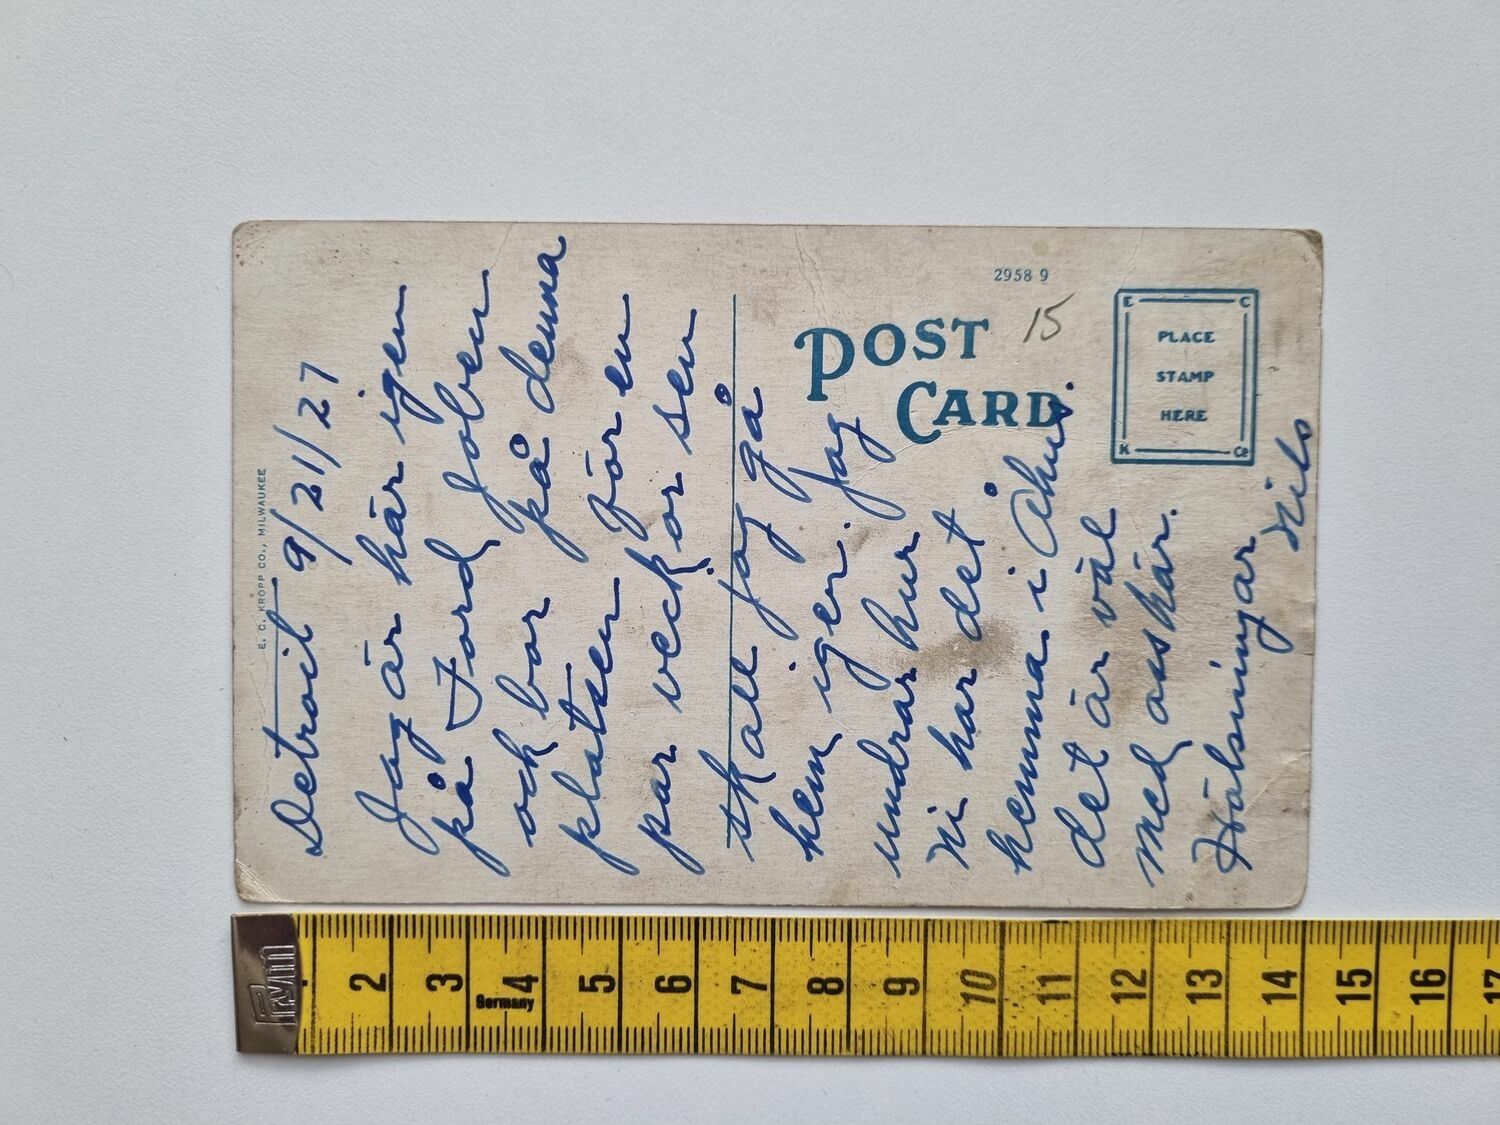 E. C. KROPP CO., MILWAUKEE
Detroit 9/21/27
Jag är här igen
på Ford Joben
och bor på denna
platsen för en
par veckor sen
skall jag gå
hem igen. Jag
undrar hur
Ni har det
hemma i Åhus.
det är väl
med oss här.
Hälsningar
Nils
2958 9
15
POST
CARD
E C
PLACE
STAMP
HERE
K Co
Prym
Germany
2 3 4 5 6 7 8 9 10 11 12 13 14 15 16 17